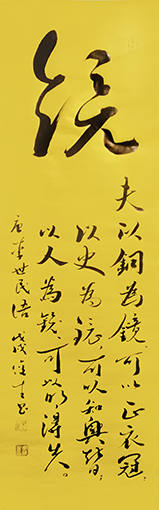 镜
夫以銅為鏡可以正衣冠
以史為镜可以知興替
以人為鏡可以明得失
唐李世民語 戊戌